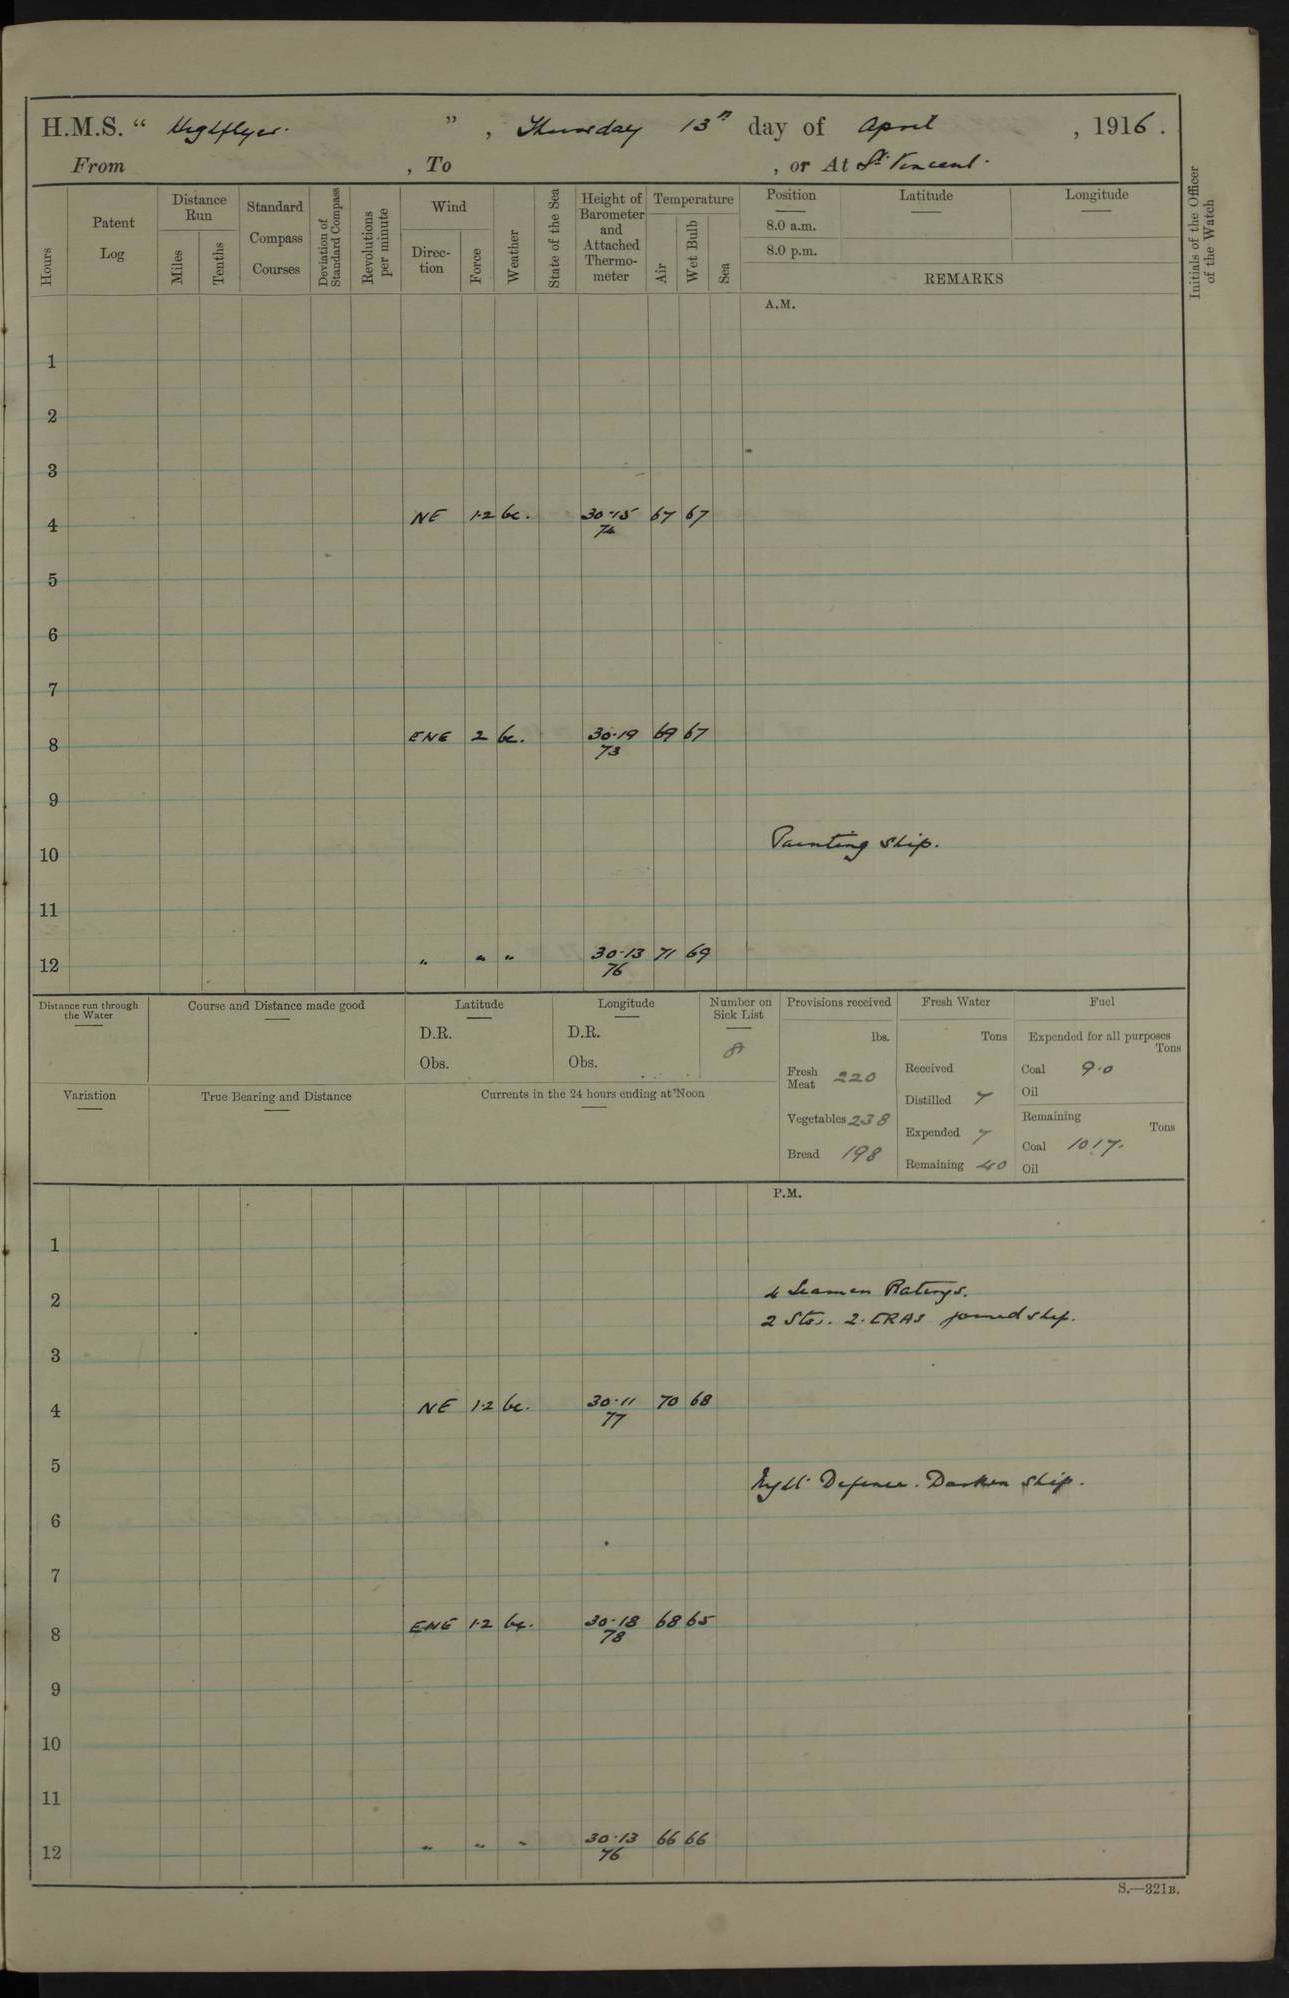 H.M.S. " Highflyer. " , Thursday 13th day of April , 1916 .
From , To , or At St Vincent.
Hours
Patent Log
Distance Run
Miles
Tenths
Standard Compass Courses
Deviation of Standard Compass
Revolutions per minute
Wind
Direc-tion
Force
Weather
State of the Sea
Height of Barometer and Attached Thermo-meter
Temperature
Air
Wet Bulb
Sea
Position Latitude Longitude
8.0 a.m.
8.0 p.m.
REMARKS
Initials of the Officer of the Watch
A.M.
1
2
3
4 NE 1·2 bc. 30·15 67 67
74
5
6
7
8 ENE 2 bc. 30·19 69 67
73
9
10 Painting ship.
11
12 " " " 30·13 71 69
76
Distance run through the Water
Course and Distance made good
Latitude
D.R.
Obs.
Longitude
D.R.
Obs.
Number on Sick List
8
Variation
True Bearing and Distance
Currents in the 24 hours ending at Noon
Provisions received
lbs.
Fresh Meat 220
Vegetables 238
Bread 198
Fresh Water
Tons
Received
Distilled 7
Expended 7
Remaining 40
Fuel
Expended for all purposes
Tons
Coal 9·0
Oil
Remaining
Tons
Coal 1017.
Oil
P.M.
1
2 4 Seamen Ratings.
2 Stos. 2. ERAs joined ship.
3
4 NE 1·2 bc. 30·11 70 68
77
5 Night Defence. Darken ship.
6
7
8 ENE 1·2 bc. 30·18 68 65
78
9
10
11
12 " " " 30·13 66 66
76
S.—321B.